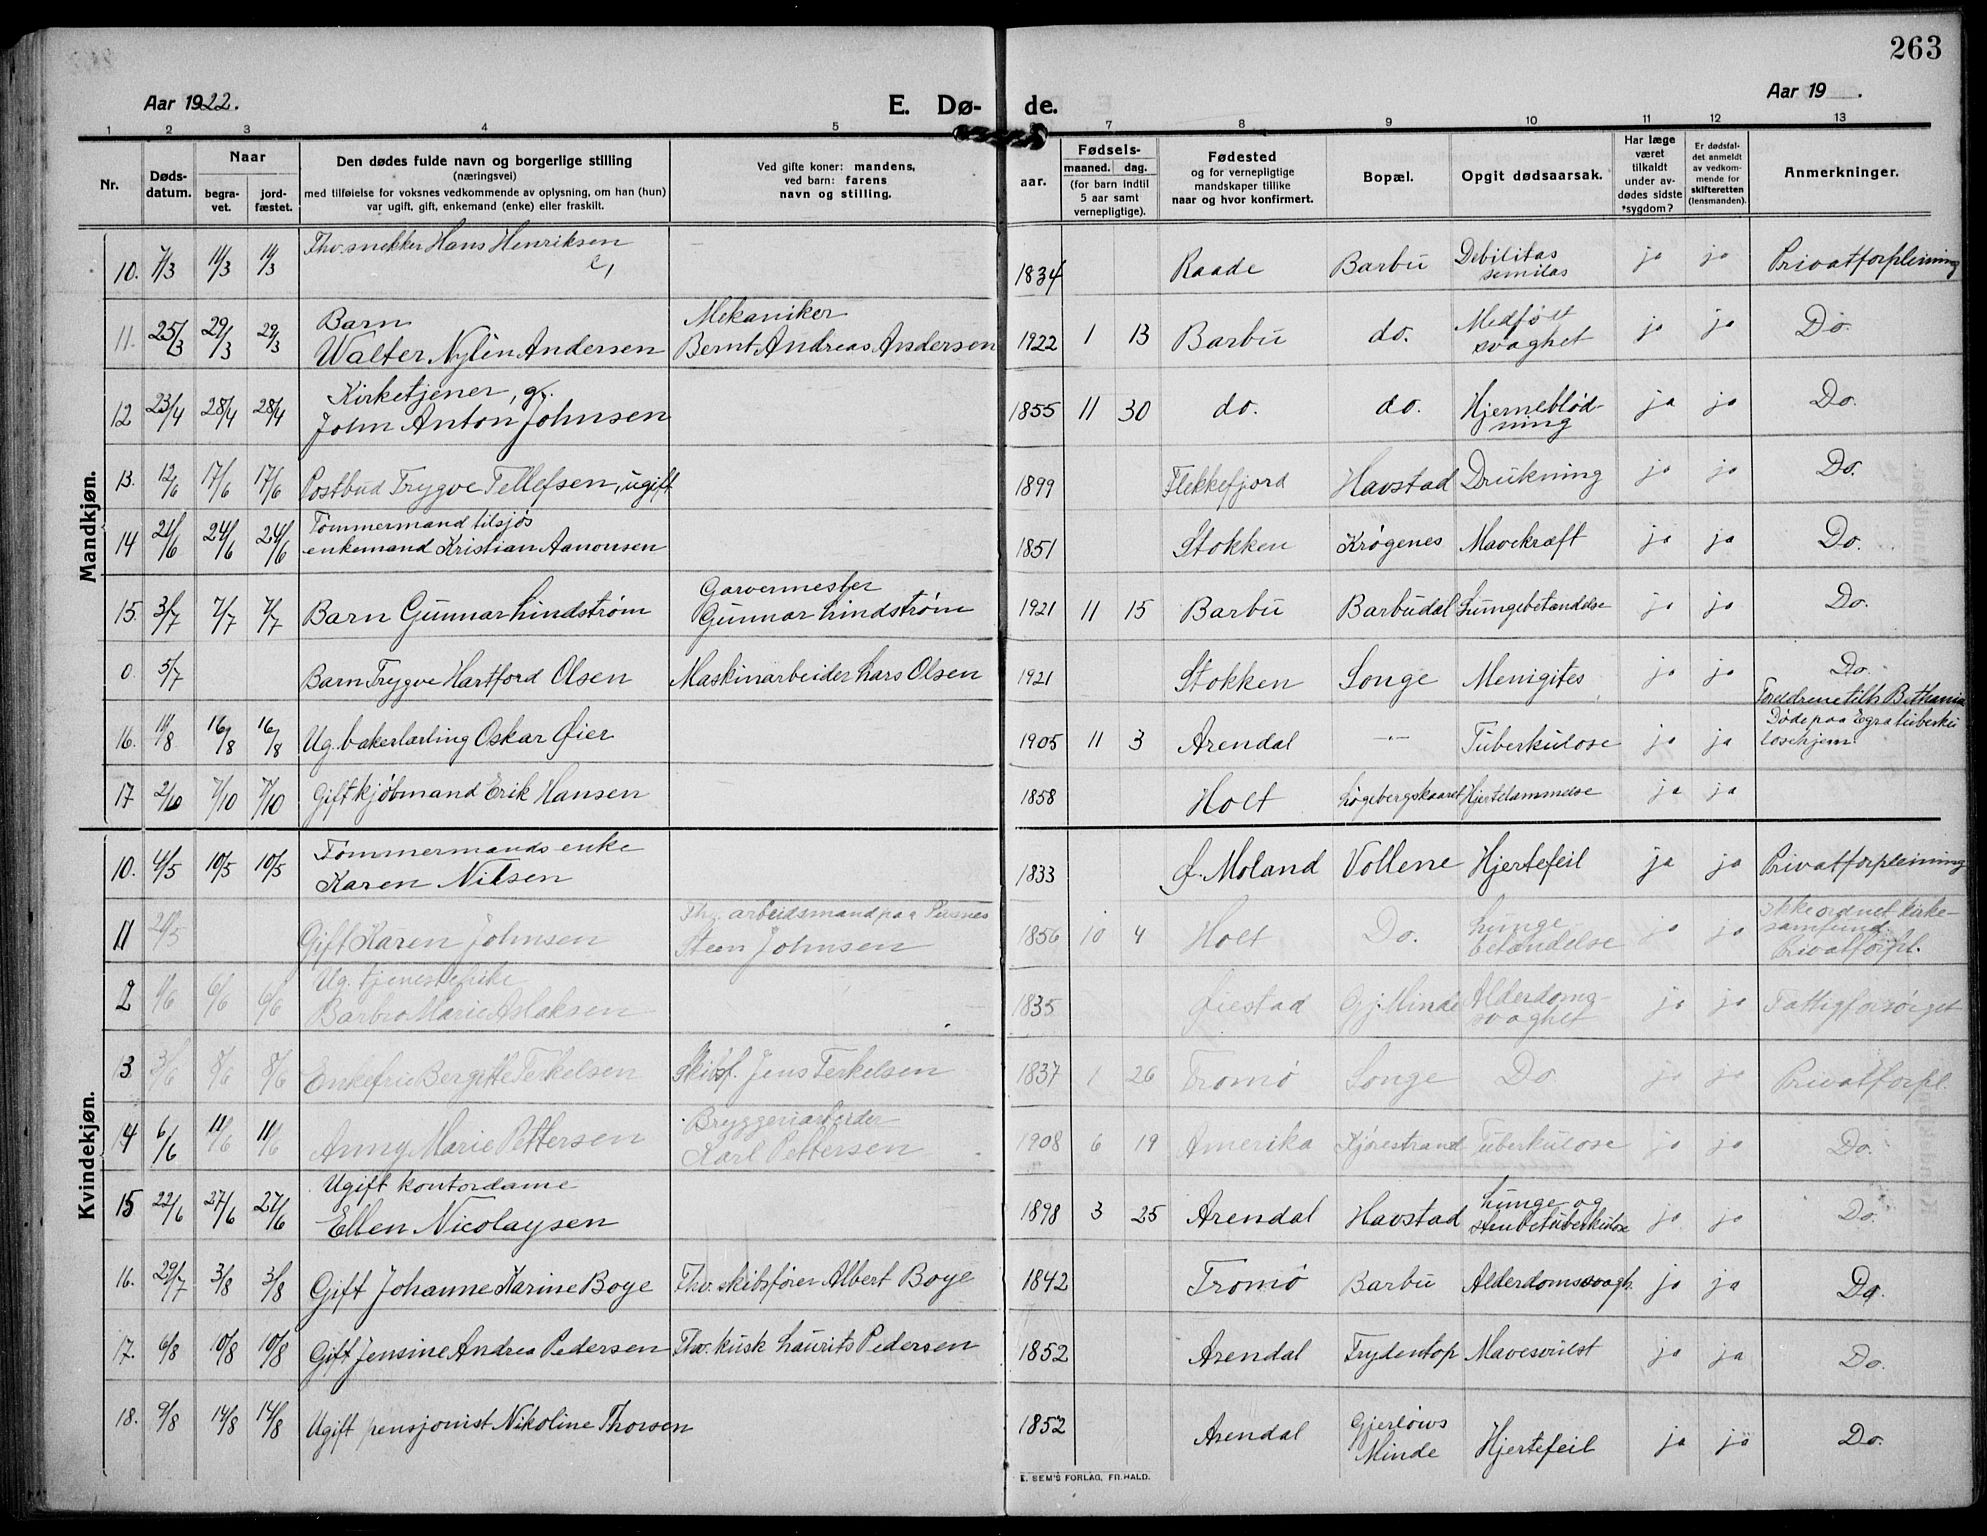 263
Aar 1922.
E. Dø- de.
Aar 19 .
1 2 3 4 5 7 8 9 10 11 12 13
Nr.
Døds-
datum.
Naar
begra-
vet.
jord-
fæstet.
Den dødes fulde navn og borgerlige stilling
(næringsvei)
med tilføielse for voksnes vedkommende av oplysning, om han (hun)
var ugift, gift, enkemand (enke) eller fraskilt.
Ved gifte koner: mandens,
ved barn: farens
navn og stilling.
aar.
Fødsels-
maaned. dag.
(for barn indtil
5 aar samt
vernepligtige).
Fødested
og for vernepligtige
mandskaper tillike
naar og hvor konfirmert.
Bopæl.
Opgit dødsaarsak.
Har læge
været
tilkaldt
under av-
dødes sidste
*sygdom?
Er dødsfal-
det anmeldt
av vedkom-
mende for
skifteretten
(lensmanden).
Anmerkninger.
Mandkjøn.
10. 7/3 11/3 11/3 Fhv. snekker Hans Henriksen
e, 1834 Raade Barbu Debilitas
ja ja Privatforpleining
11. 25/3 29/3 29/3 Barn
Walter Nylèn Andersen Mekaniker
Bernt Andreas Andersen 1922 1 13 Barbu do. Medfødt
svaghet ja ja Do.
12 23/4 28/4 28/4 Kirketjener, g.
John Anton Johnsen 1855 11 30 do. do. Hjerneblød-
ning ja ja Do.
13. 12/6 17/6 17/6 Postbud Trygve Tellefsen, ugift 1899 Flekkefjord Havstad Drukning ja ja Do.
14 21/6 24/6 24/6 Tømmermand tilsjøs
enkemand Kristian Aanonsen 1851 Stokken Krøgenes Mavekræft ja ja Do.
15. 3/7 7/7 7/7 Barn Gunnar Lindstrøm Garvermester
Gunnar Lindstrøm 1921 11 15 Barbu Barbudal Lungebetændelse ja ja Do.
0. 5/7 Barn Trygve Hartford Olsen Maskinarbeider Lars Olsen 1921 Stokken Songe Menigites ja ja Do.
Foreldrene tilh. Bethania
16. 11/8 16/8 16/8 Ug. bakerlærling Oskar Øier 1905 11 3 Arendal -"- Tuberkulose ja ja Døde paa Egra tuberku
losehjem
17 2/10 7/10 7/10 Gift kjøbmand Erik Hansen 1858 Holt Løgebergskaaret Hjertelammelse ja ja
Kvindekjøn.
10. 4/5 10/5 10/5 Tømmermands enke
Karen Nilsen 1833 Ø. Moland Vollene Hjertefeil ja ja Privatforpleining
11 Gift Karen Johnsen Fhv. arbeidsmand paa Pusnes
Steen Johnsen 1856 10 4 Holt Do. Lunge
betændelse ja ja Ikke ordnet kirke-
samfund.
Privatforpl.
2 6/6 6/6 Ug. tjenestepike
Barbro Marie Aslaksen 1835 Øiestad Gj. Minde Alderdoms-
svaghet ja ja Fattigforsørget
13 3/6 8/6 8/6 Enkefru Bergitte Terkelsen Skibsf. Jens Terkelsen 1837 1 26 Tromø Songe Do ja ja Privatforpl.
14 6/6 11/6 11/6 Anny Marie Pettersen Bryggeriarbeider
Karl Pettersen 1908 6 19 Amerika Kjørestrand Tuberkulose ja ja Do.
15 22/6 27/6 27/6 Ugift kontordame
Ellen Nicolaysen 1898 3 25 Arendal Havstad Lunge og
strubetuberkulose ja ja Do.
16. 29/7 3/8 3/8 Gift Johanne Karine Boye Fhv. skibsfører Albert Boye 1842 Tromø Barbu Alderdomssvagh. ja ja Do.
17. 6/8 10/8 10/8 Gift Jensine Andrea Pedersen Fhv. kusk Laurits Pedersen 1852 Arendal Frydentop Mavesvulst ja ja Do.
18. 9/8 14/8 14/8 Ugift pensjonist Nikoline Thorsen 1852 Arendal Gjerløws
Minde Hjertefeil ja ja Do.
E. SEM'S FORLAG, FR.HALD.